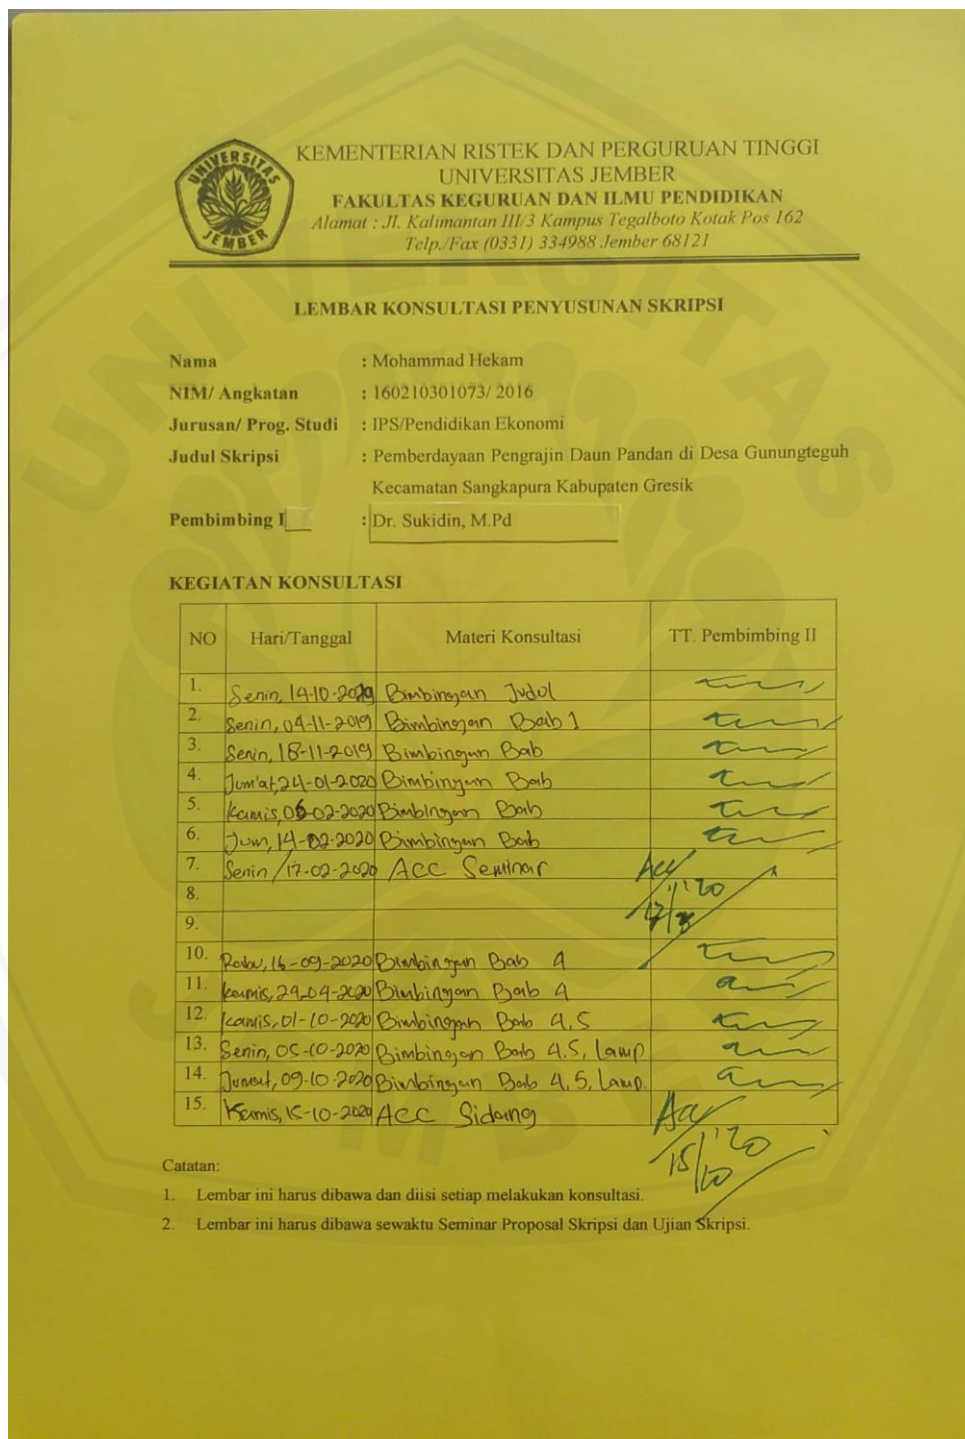 UNIVERSITAS
JEMBER
KEMENTERIAN RISTEK DAN PERGURUAN TINGGI
UNIVERSITAS JEMBER
FAKULTAS KEGURUAN DAN ILMU PENDIDIKAN
Alamat : Jl. Kalimantan III/3 Kampus Tegalboto Kotak Pos 162
Telp./Fax (0331) 334988 Jember 68121
LEMBAR KONSULTASI PENYUSUNAN SKRIPSI
Nama : Mohammad Hekam
NIM/ Angkatan : 160210301073/ 2016
Jurusan/ Prog. Studi : IPS/Pendidikan Ekonomi
Judul Skripsi : Pemberdayaan Pengrajin Daun Pandan di Desa Gunungteguh
Kecamatan Sangkapura Kabupaten Gresik
Pembimbing I : Dr. Sukidin, M.Pd
KEGIATAN KONSULTASI
NO Hari/Tanggal Materi Konsultasi TT. Pembimbing II
1. Senin, 14-10-2019 Bimbingan Judul
2. Senin, 04-11-2019 Bimbingan Bab 1
3. Senin, 18-11-2019 Bimbingan Bab
4. Jum'at, 24-01-2020 Bimbingan Bab
5. Kamis, 06-02-2020 Bimbingan Bab
6. Jum, 14-02-2020 Bimbingan Bab
7. Senin / 17-02-2020 ACC Seminar Acc
8. '20
9. 17/
10. Rabu, 16-09-2020 Bimbingan Bab 4
11. Kamis, 24-09-2020 Bimbingan Bab 4
12. Kamis, 01-10-2020 Bimbingan Bab 4,5
13. Senin, 05-10-2020 Bimbingan Bab 4.5, Lamp
14. Jumat, 09-10-2020 Bimbingan Bab 4, 5, Lamp.
15. Kamis, 15-10-2020 ACC Sidang Acc
15/10 '20
Catatan:
1. Lembar ini harus dibawa dan diisi setiap melakukan konsultasi.
2. Lembar ini harus dibawa sewaktu Seminar Proposal Skripsi dan Ujian Skripsi.